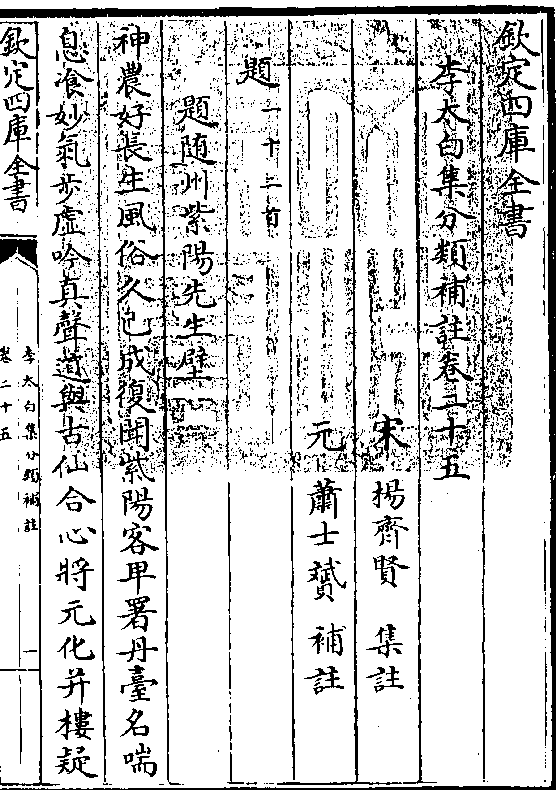 欽定四庫全書
李太白集分類補註卷二十五
宋 楊齊賢 集註
元 蕭士贇 補註
題一十二首
題随州紫陽先生壁
神農好長生風俗久已成復聞紫陽客早署丹臺名喘
息飡妙氣步虛吟真聲道與古仙合心將元化并樓疑
欽定四庫全書
李太白集分類補註
卷二十五
一